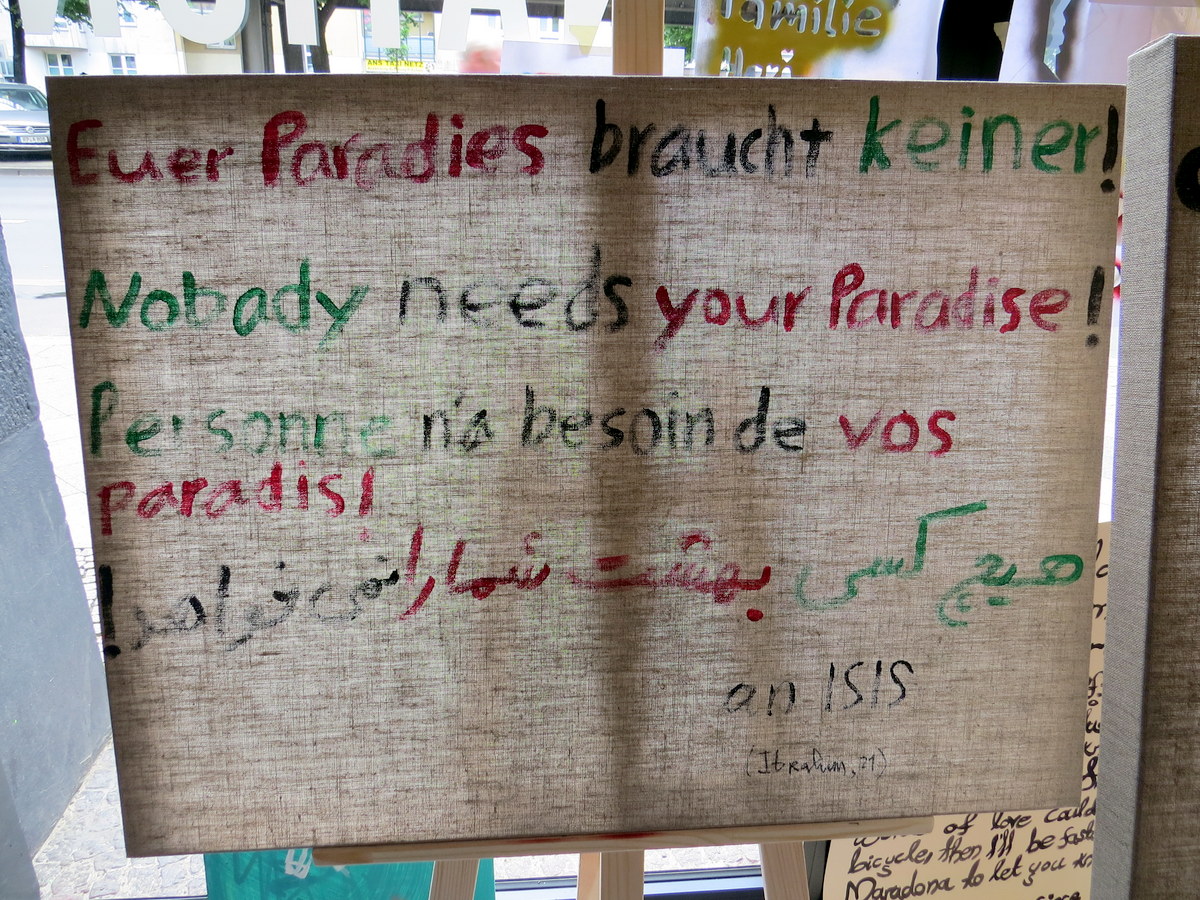 familie
Euer Paradies braucht keiner!
Nobady needs your Paradise!
Personne n'a besoin de vos
paradis!
هیچ کسی بهشت شما را نمی خواهد!
an ISIS
(Ibrahim, 21)
of love could
bicycle, then I'll be fast
Maradona to let you